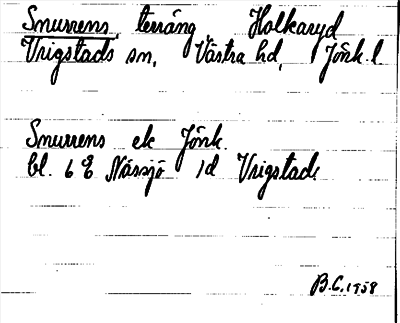 Smurrens, terräng, Holkaryd
Vrigstads sn, Västra hd, Jönk. l.
Smurrens ek Jönk.
bl. 6 E Nässjö 1d Vrigstad.
B.C. 1958